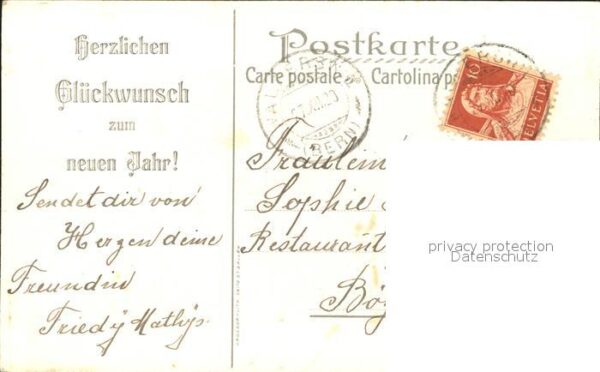 Herzlichen
Glückwunsch
zum
neuen Jahr!
Sendet dir von
Herzen deine
Freundin
Friedÿ Mathÿs.
Postkarte
Carte postale
Cartolina p
(BERN)
10
HELVETIA
Fräulein
Sophie
Restaurant
privacy protection
Datenschutz